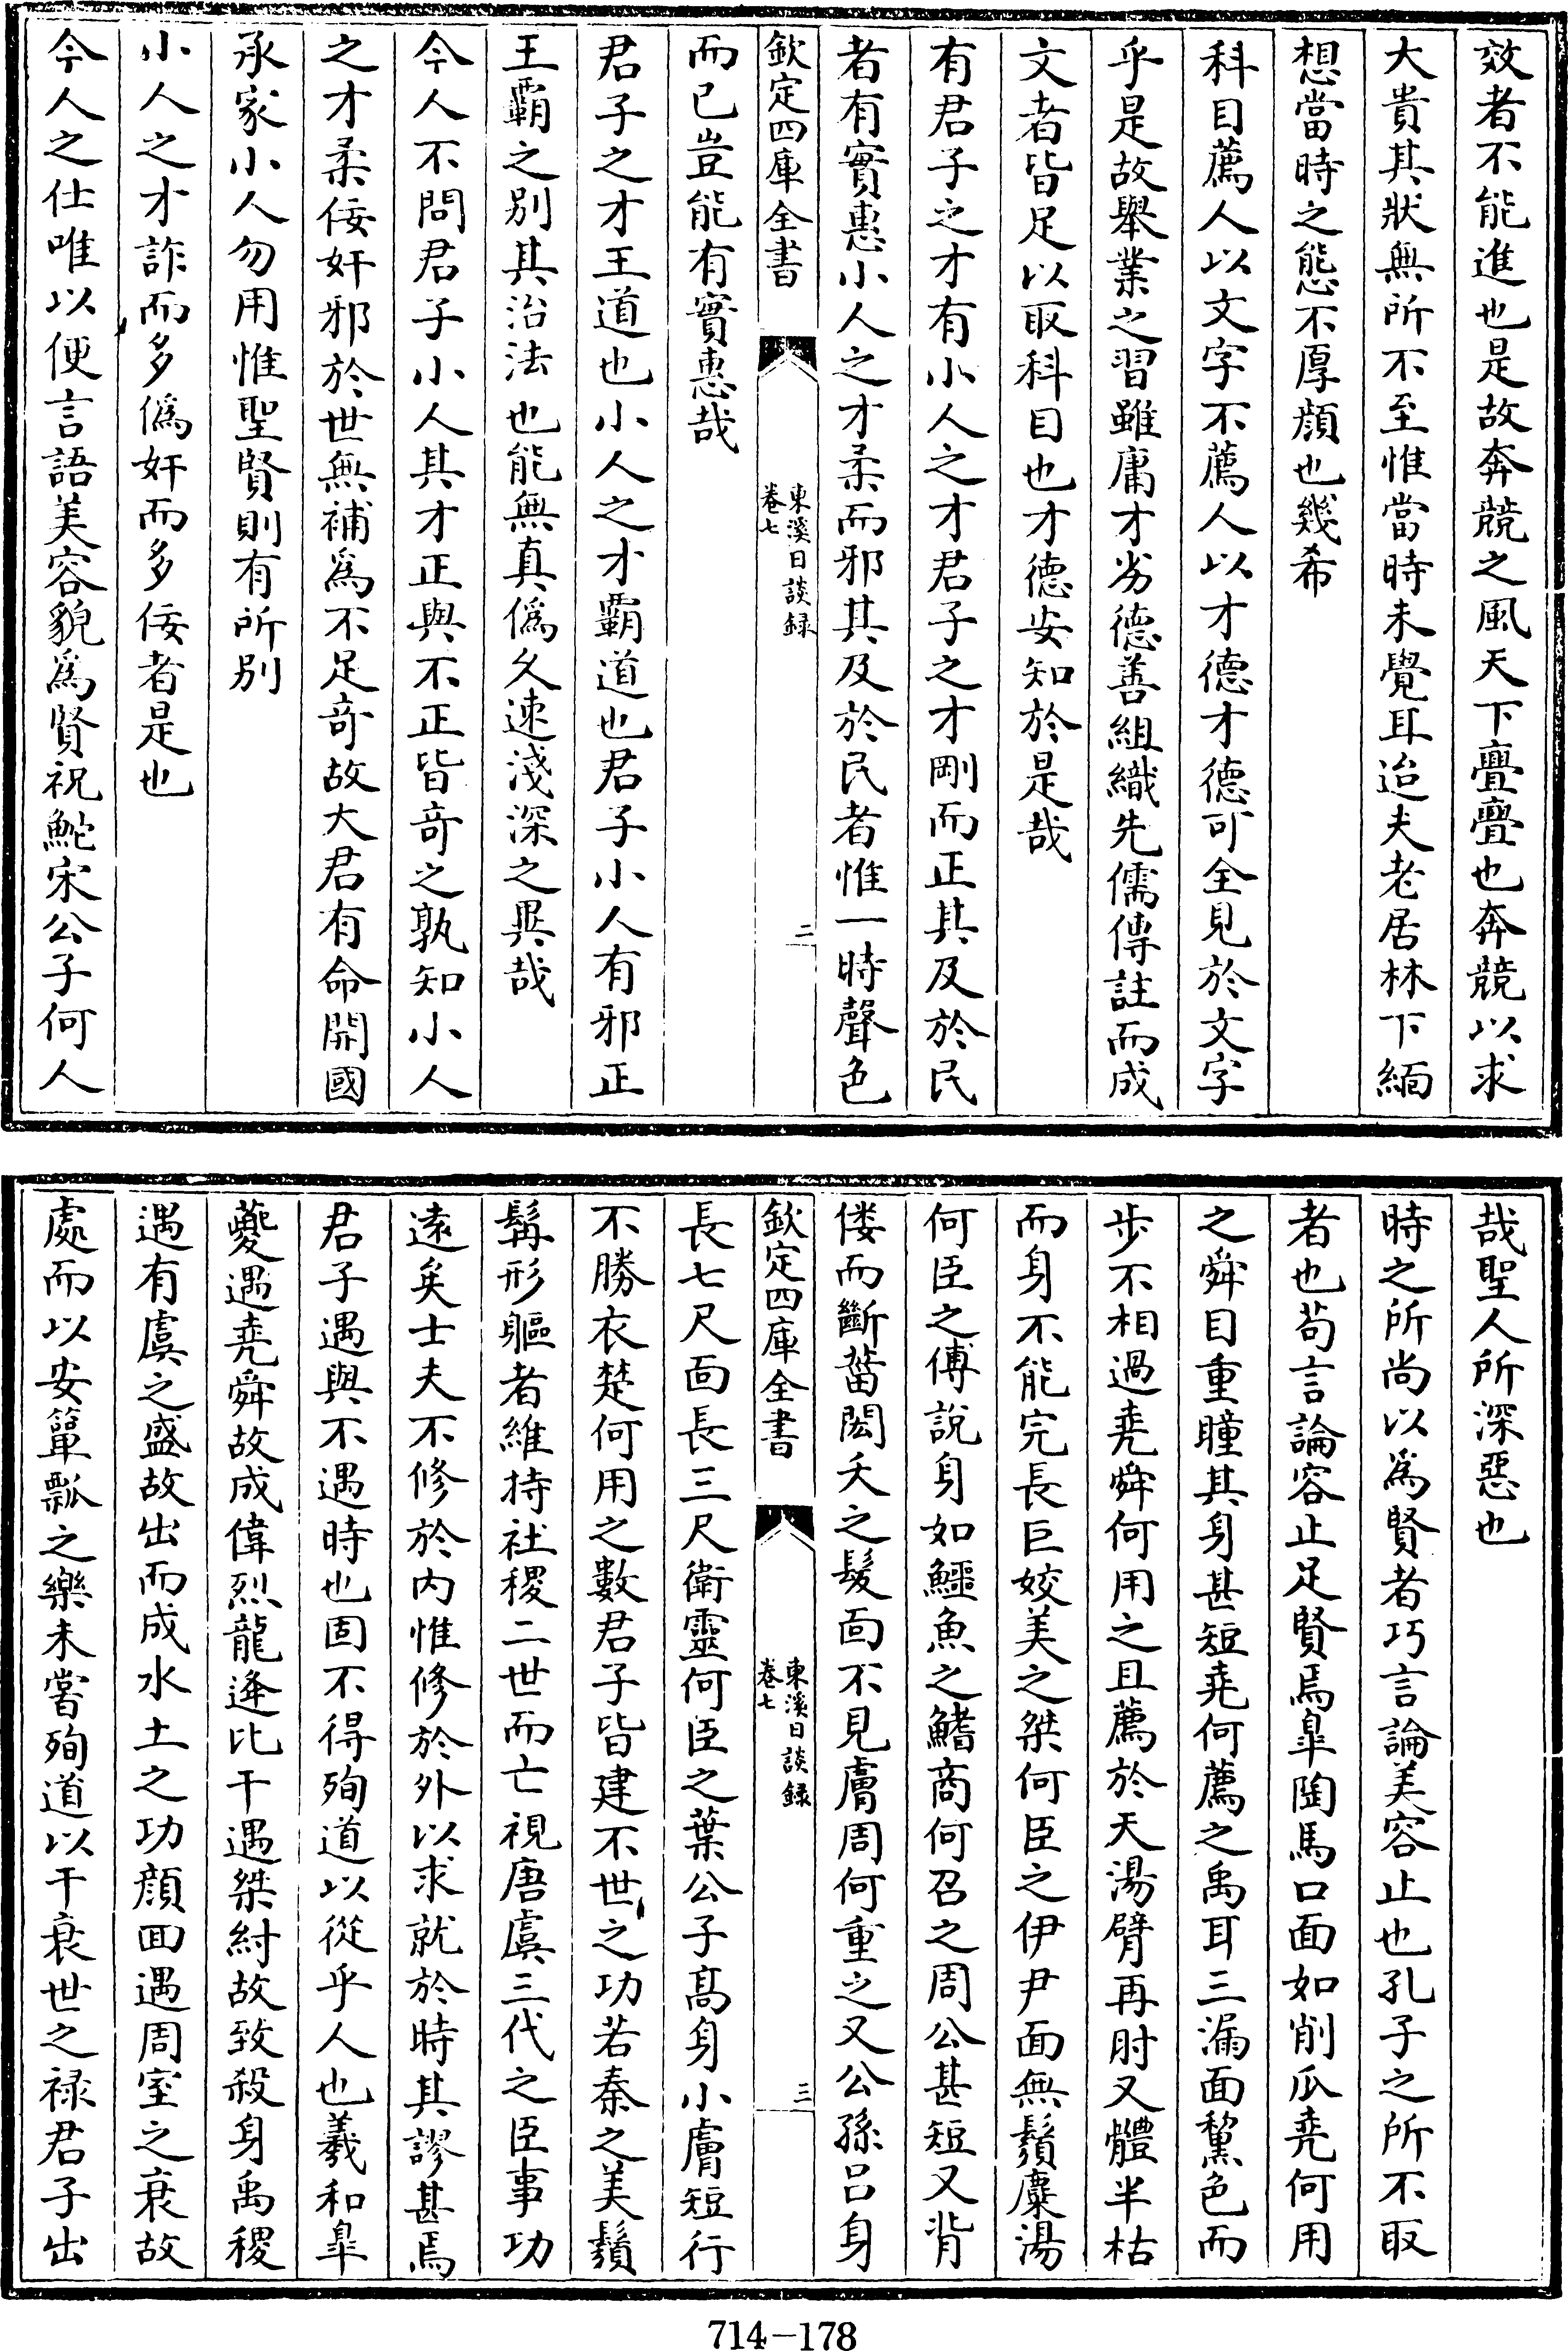 效者不能進也是故奔競之風天下亹亹也奔競以求
大貴其狀無所不至惟當時未覺耳迨夫老居林下緬
想當時之態不厚顔也幾希
科目薦人以文字不薦人以才德才德可全見於文字
乎是故舉業之習雖庸才劣德善組織先儒傳註而成
文者皆足以取科目也才德安知於是哉
有君子之才有小人之才君子之才剛而正其及於民
者有實惠小人之才柔而邪其及於民者惟一時聲色
欽定四庫全書
東溪日談録
卷七
二
而已豈能有實惠哉
君子之才王道也小人之才霸道也君子小人有邪正
王霸之别其治法也能無真僞久速淺深之異哉
今人不問君子小人其才正與不正皆竒之孰知小人
之才柔佞奸邪於世無補爲不足竒故大君有命開國
承家小人勿用惟聖賢則有所别
小人之才詐而多僞奸而多佞者是也
今人之仕唯以便言語美容貌爲賢祝鮀宋公子何人
哉聖人所深惡也
時之所尚以爲賢者巧言論美容止也孔子之所不取
者也茍言論容止足賢焉臯陶馬口面如削瓜堯何用
之舜目重瞳其身甚短堯何薦之禹耳三漏面黧色而
步不相過堯舜何用之且薦於天湯臂再肘又體半枯
而身不能完長巨姣美之桀何臣之伊尹面無鬚麋湯
何臣之傅說身如鱷魚之鰭商何召之周公甚短又背
僂而斷菑閎夭之髮面不見膚周何重之又公孫呂身
欽定四庫全書
東溪日談録
卷七
三
長七尺面長三尺衛靈何臣之葉公子髙身小膚短行
不勝衣楚何用之數君子皆建不世之功若秦之美鬚
髯形軀者維持社稷二世而亡視唐虞三代之臣事功
逺矣士夫不修於内惟修於外以求就於時其謬甚焉
君子遇與不遇時也固不得殉道以從乎人也羲和臯
夔遇堯舜故成偉烈龍逄比干遇桀紂故致殺身禹稷
遇有虞之盛故出而成水土之功顔回遇周室之衰故
處而以安簞瓢之樂未嘗殉道以干衰世之禄君子出
714-178